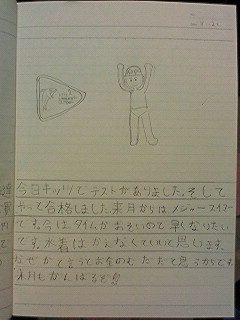 今日キッツでテストがありました。そして
やっと合格しました来月からはメジャースイマー
です。今はタイムがおそいので早くなりたい
です。水着はかえなくていいと思います。
なぜかと言うとお金のむだだと思うからです。
来月もがんばるぞ